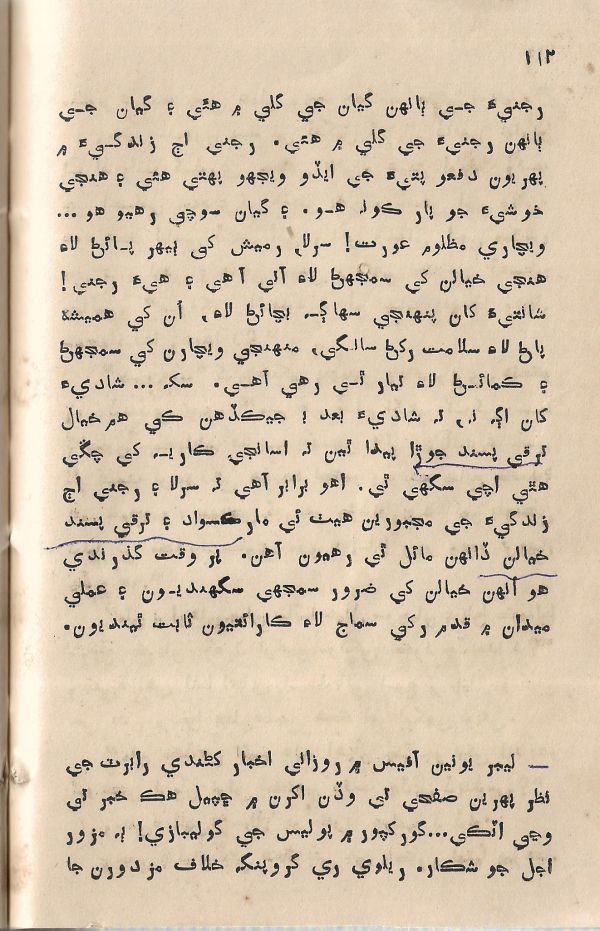 ۱۱۲
رجنيءَ جي ٻانهن گيان جي ڳلي ۾ هئي ۽ گيان جي
ٻانهن رجنيءَ جي ڳلي ۾ هئي. رجني اڄ زندگيءَ ۾
پهريون دفعو پتيءَ جي ايڏو ويجهو پهتي هئي ۽ هنجي
خوشيءَ جو پار ڪونہ هو. ۽ گيان سوچي رهيو هو...
ويچاري مظلوم عورت! سرلا، رميش کي ٻيهر پائڻ لاءِ
هنجي خيالن کي سمجهڻ لاءِ آئي آهي ۽ هيءَ رجني!
شانتيءَ کان پنهنجي سهاڳہ بچائڻ لاءِ، اُن کي هميشہ
پاڻ لاءِ سلامت رکڻ سانگي، منهنجي ويچارن کي سمجهڻ
۽ ڪمائڻ لاءِ تيار ٿي رهي آهي. سک... شاديءَ
کان اڳہ نہ، تہ شاديءَ بعد ۽ جيڪڏهن ڪي هم خيال
ترقي پسند جوڙا پيدا ٿين تہ اسانجي ڪاريہ کي چڱي
هٿي اچي سگهي ٿي. اهو برابر آهي تہ سرلا ۽ رجني اڄ
زندگيءَ جي مجبورين هيٺ ئي مارڪسواد ۽ ترقي پسند
خيالن ڏانهن مائل ٿي رهيون آهن. پر وقت گذرندي
هو انهن خيالن کي ضرور سمجهي سگهنديون ۽ عملي
ميدان ۾ قدم رکي سماج لاءِ ڪارائتيون ثابت ٿينديون.
— ليبر يونين آفيس ۾ روزاني اخبار کڻندي رابرٽ جي
نظر پهرين صفحي تي وڏن اکرن ۾ ڇپيل هڪ خبر تي
وڃي اٽڪي...گورکپور ۾ پوليس جي گوليبازي! ٻہ مزور
اجل جو شڪار. ريلوي ري گروپنگہ خلاف مزدورن جا